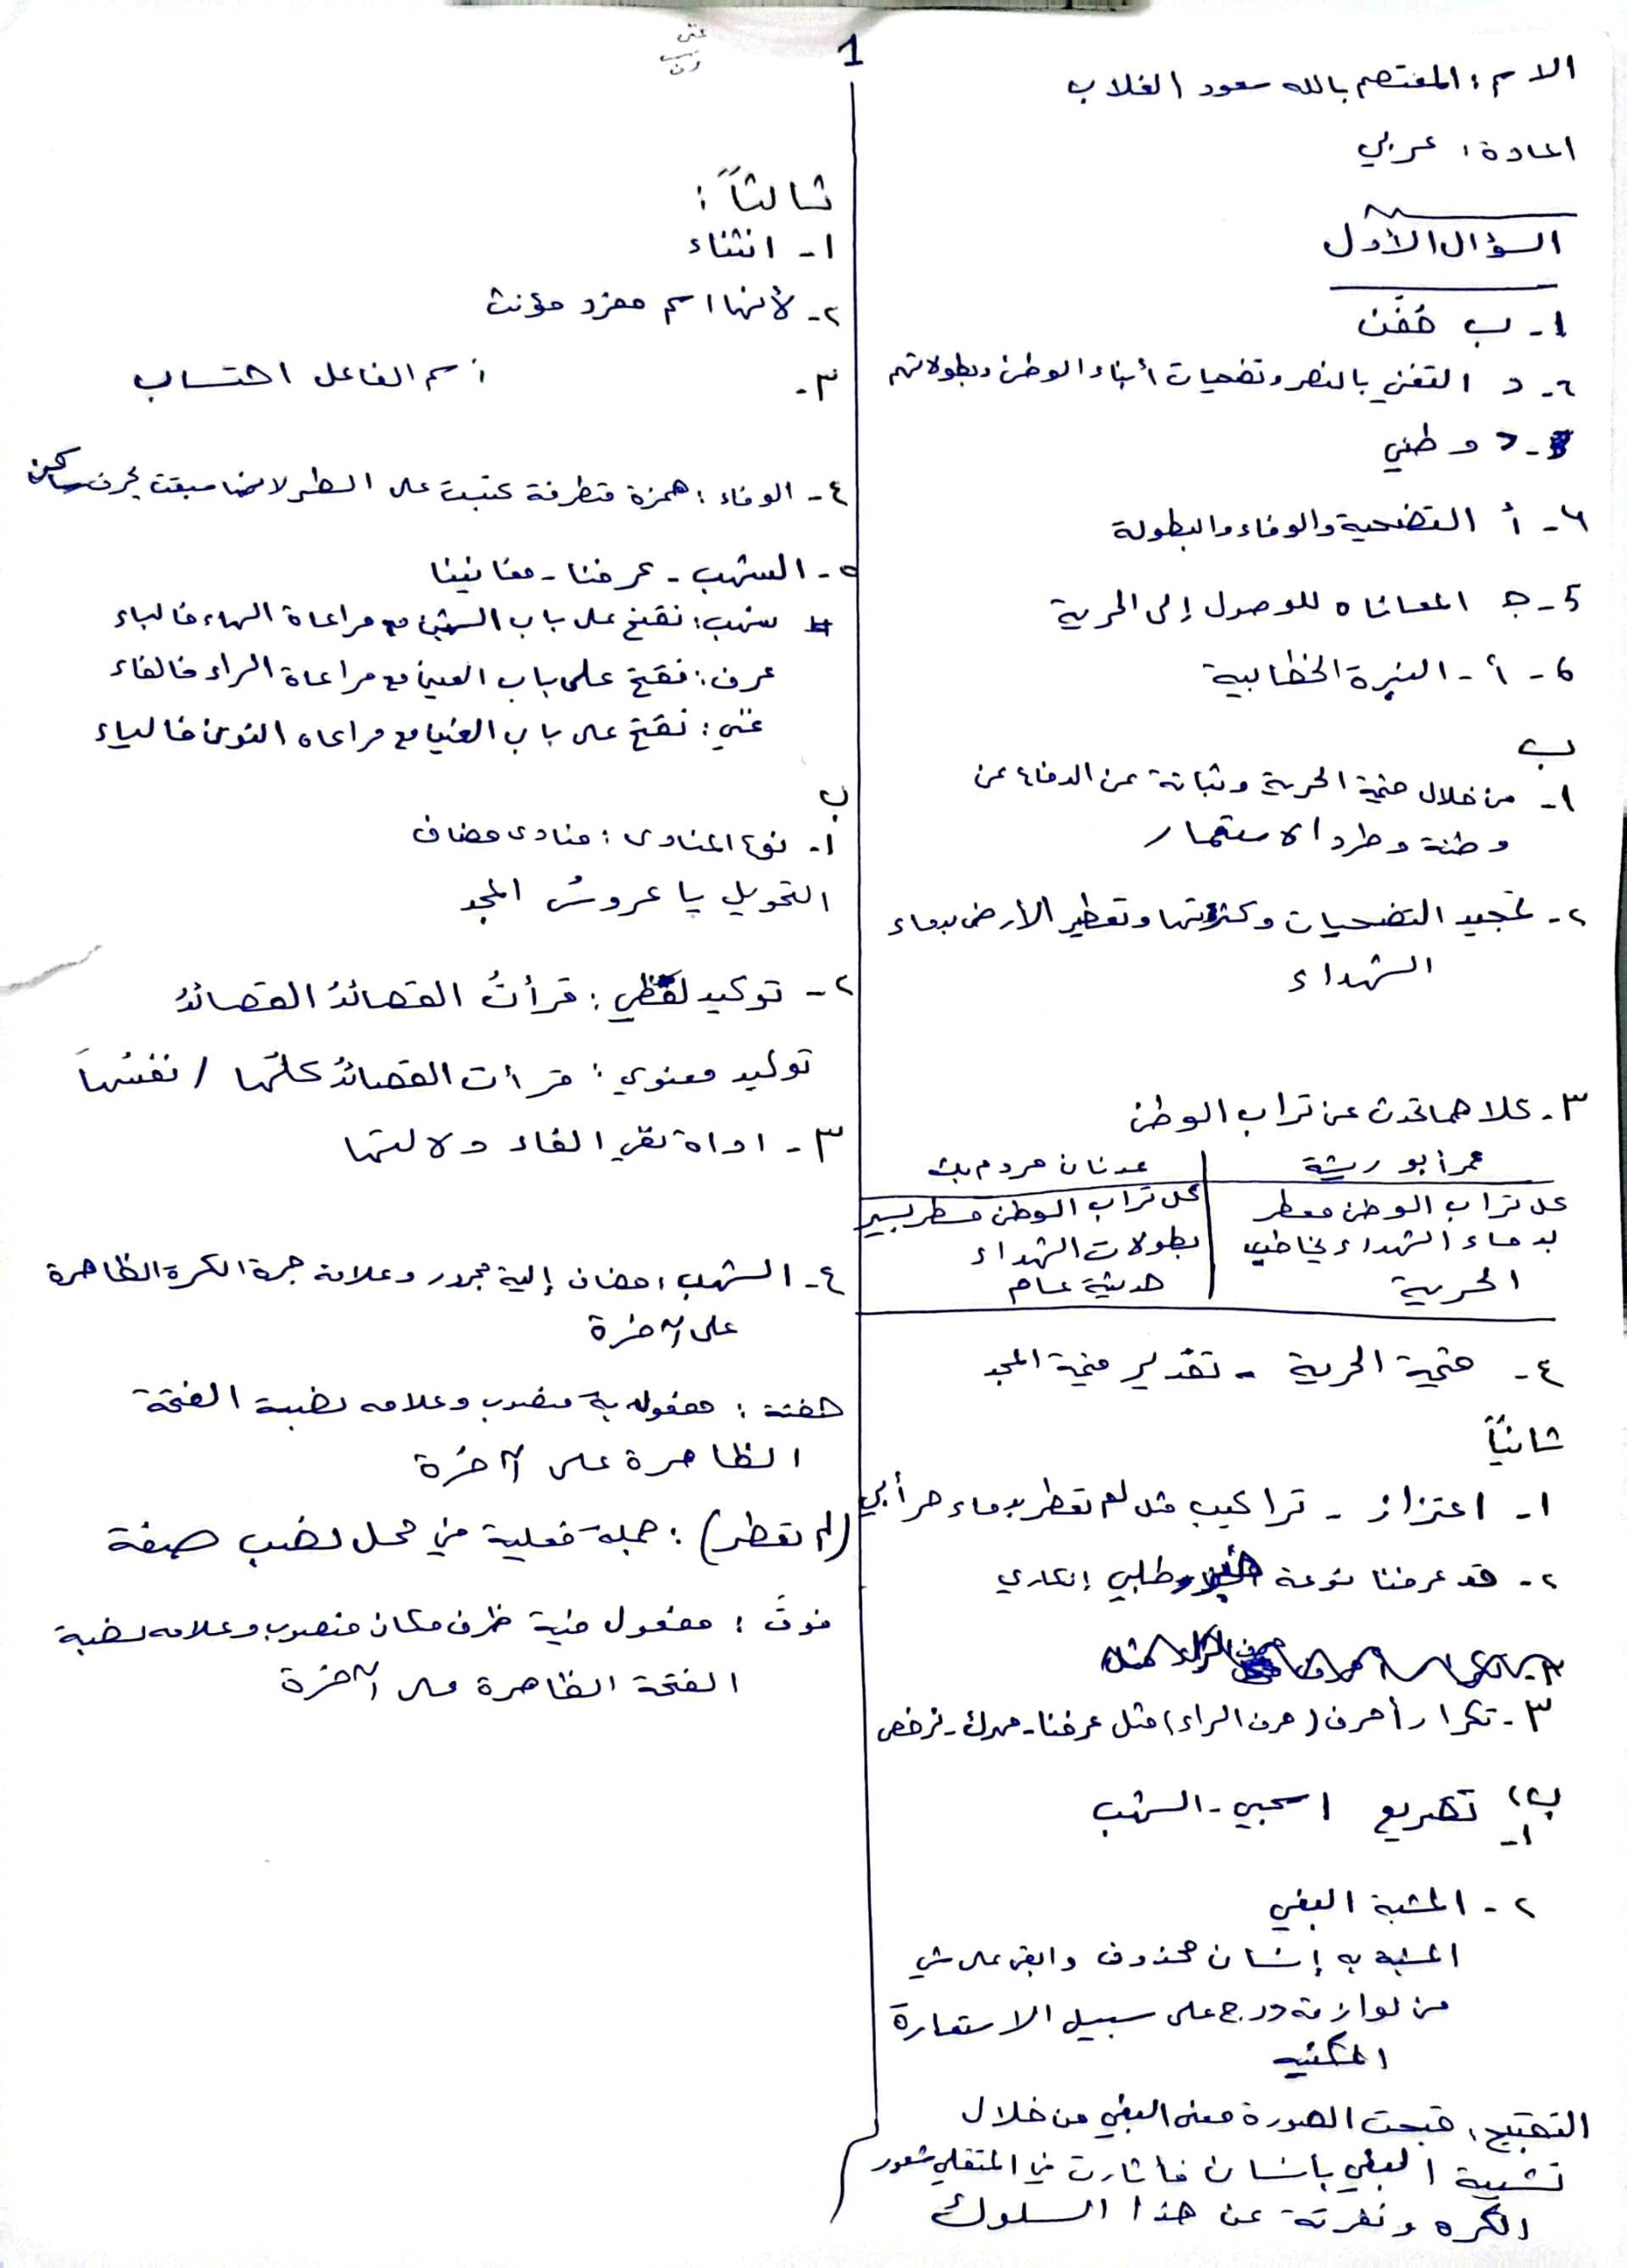 1
الاسم: المعتصم بالله سعود الغلاب
المادة: عربي
السؤال الأول
1- ب حُفَن
2- د التغني بالنصر وتضحيات أبناء الوطن وبطولاتهم
د وطني
4- أ التضحية والوفاء والبطولة
5- ج المعاناه للوصول إلى الحرية
6- أ - النبرة الخطابية
ب
1- من خلال حتمية الحرية وثباتة عن الدفاع عن
وطنة وطرد الاستعمار
2- تمجيد التضحيات وكثرتها وتعطير الأرض بدماء
الشهداء
3- كلاهما تحدث عن تراب الوطن
عمر أبو ريشة | عدنان مردم بك
كل تراب الوطن معطر | كل تراب الوطن مسطر بسير
بدماء الشهداء يخاطب | بطولات الشهداء
الحرية | حديثة عام
4- حتمية الحرية - تقدير قيمة المجد
ثانياً
1- اعتزاز - تراكيب مثل لم تعطر بدماء حر أبي
2- قد عرفنا نوعة طلبي إنكاري
3- تكرار أحرف (حرف الراء) مثل عرفنا - مهرك - نرخص
ب)
1- تصريع اسحبي - الشهب
2- المشبة البغي
المشبه به إنسان محذوف وابقى على شي
من لوازمة ودرج على سبيل الاستعارة
المكنيه
التقبيح، قبحت الصورة معنى البغي من خلال
تشبية البغي بانسان فاثارت في المتلقي شعور
الكره ونفرتة عن هذا السلوك
ثالثاً:
1- انثناء
2- لأنها اسم مفرد مؤنث
3- اسم الفاعل احتساب
4- الوفاء: همزة متطرفة كتبت على السطر لانها سبقت بحرف ساكن
5- الشهب - عرفنا - مغانينا
شهب: نفتح على باب الشين مع مراعاة الهاء فالباء
عرف: نفتح على باب العين مع مراعاة الراء فالفاء
غني: نفتح على باب الغين مع مراعاه النون فالياء
ب
1- نوع المنادى: منادى مضاف
التحويل يا عروسُ المجد
2- توكيد لفظي: قرأتُ القصائدُ القصائدُ
توكيد معنوي: قرأت القصائدُ كلُّها / نفسُها
3- اداة نفي الفاء دلالتها
4- الشهب: مضاف إلية مجرور وعلامة جرة الكرة الظاهرة
على آخرة
حفنة: مفعول بة منصوب وعلامه نصبة الفتحة
الظاهرة على آخرة
(لم تعطر): جملة فعلية في محل نصب صفة
فوقَ: مفعول فية ظرف مكان منصوب وعلامه نصبة
الفتحة الظاهرة على آخرة